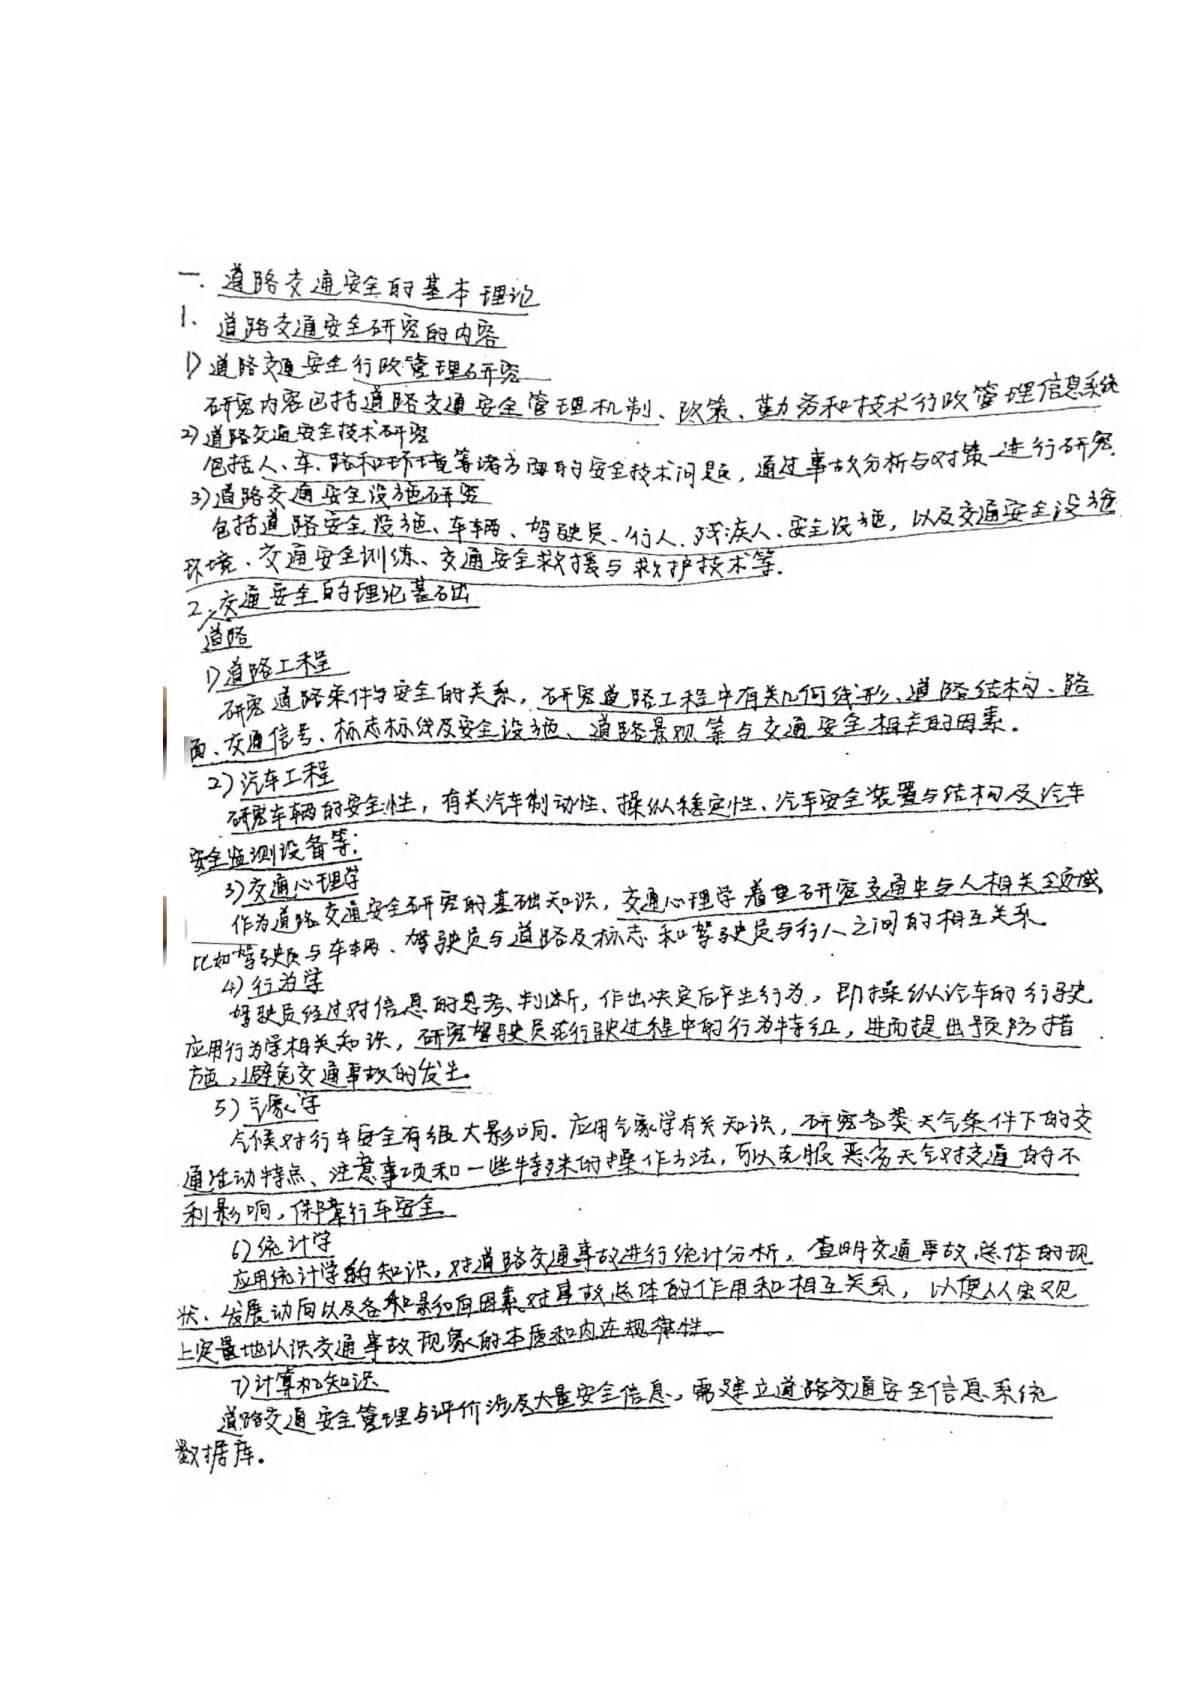 一. 道路交通安全的基本理论
1. 道路交通安全研究的内容
1) 道路交通安全行政管理研究
研究内容包括道路交通安全管理机制、政策、勤务和技术行政管理信息系统
2) 道路交通安全技术研究
包括人、车、路和环境等诸方面的安全技术问题，通过事故分析与对策进行研究.
3) 道路交通安全设施研究
包括道路安全设施、车辆、驾驶员、行人、残疾人、安全设施，以及交通安全设施
环境、交通安全训练、交通安全救援与救护技术等.
2. 交通安全的理论基础
道路
1) 道路工程
研究道路条件与安全的关系，研究道路工程中有关几何线形、道路结构、路
面、交通信号、标志标线及安全设施、道路景观等与交通安全相关的因素。
2) 汽车工程
研究车辆的安全性，有关汽车制动性、操纵稳定性、汽车安全装置与结构及汽车
安全监测设备等；
3) 交通心理学
作为道路交通安全研究的基础知识，交通心理学着重研究交通中与人相关全领域，
比如驾驶员与车辆、驾驶员与道路及标志和驾驶员与行人之间的相互关系
4) 行为学
驾驶员经过对信息的思考、判断，作出决定后产生行为，即操纵汽车的行驶
应用行为学相关知识，研究驾驶员在行驶过程中的行为特征，进而提出预防措
施，避免交通事故的发生。
5) 气象学
气候对行车安全有很大影响. 应用气象学有关知识，研究各类天气条件下的交
通活动特点、注意事项和一些特殊的操作方法，可以克服恶劣天气对交通的不
利影响，保障行车安全。
6) 统计学
应用统计学的知识，对道路交通事故进行统计分析，查明交通事故总体的现
状、发展动向以及各种影响因素对事故总体的作用和相互关系，以便从宏观
上定量地认识交通事故现象的本质和内在规律性。
7) 计算机知识
道路交通安全管理与评价涉及大量安全信息，需建立道路交通安全信息系统
数据库。